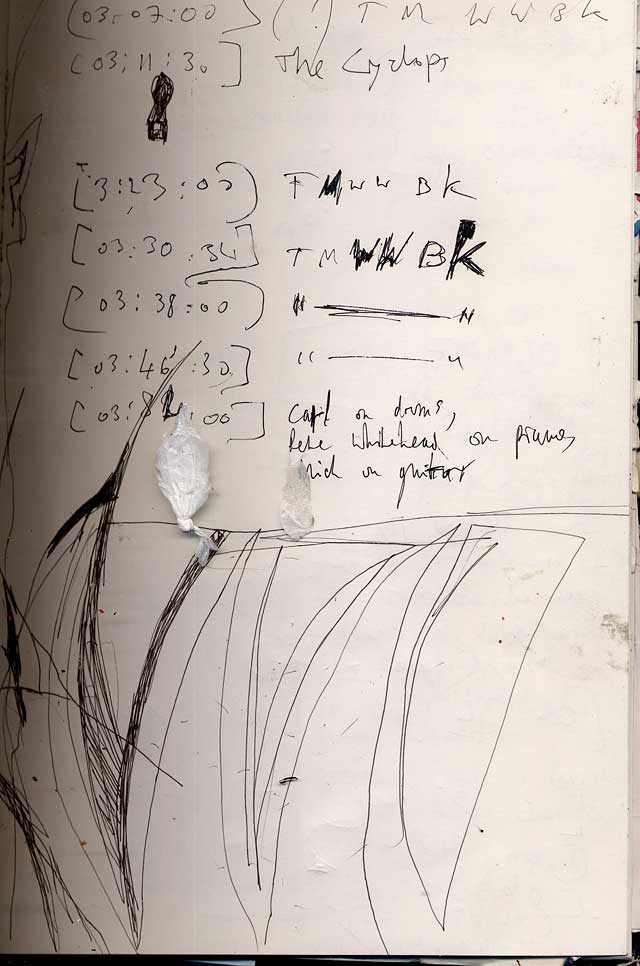 [03:07:00] (") T M W W B K
[03:11:30] The Cyclops
[3:23:00) T M W W B K
[03:30:34] T M W W B K
[03:38:00) " ——— "
[03:46:30] " ——— "
[03: :00] Carl on drums,
Pete Whitehead on piano,
on guitar